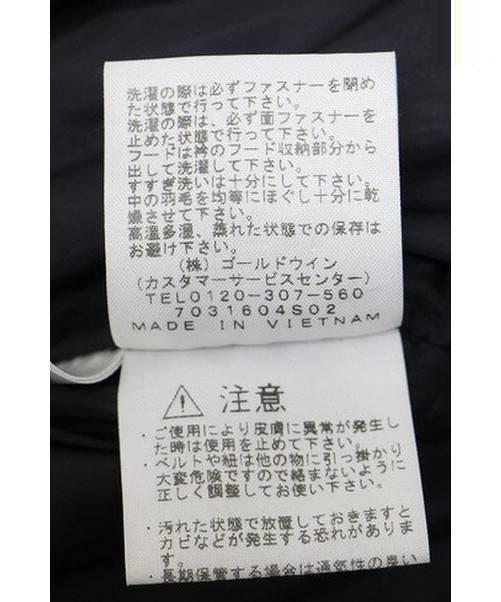 洗濯の際は必ずファスナーを閉め
た状態で行って下さい。
洗濯の際は、必ず面ファスナーを
止めた状態で行って下さい。
フードは衿のフード収納部分から
出して洗濯して下さい。
すすぎ洗いは十分にして下さい。
中の羽毛を均等にほぐし十分に乾
燥させて下さい。
高温多湿、蒸れた状態での保存は
お避け下さい。
(株)ゴールドウイン
(カスタマーサービスセンター)
TEL0120-307-560
7031604S02
MADE IN VIETNAM
注意
・ご使用により皮膚に異常が発生し
た時は使用を止めて下さい。
・ベルトや紐は他の物に引っ掛かり
大変危険ですので絡まないように
正しく調整してお使い下さい。
・汚れた状態で放置しておきますと
カビなどが発生する恐れがありま
す。
・長期保管する場合は通気性の良い